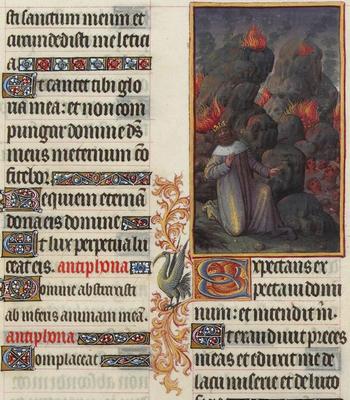 sti sanctum meum et
circumdedisti me letici
a
Et cantet tibi glo
ria mea: et non com
pungar domine d̄s
meus in eternum cō
fitebor.
Requiem eternā
dona eis domine
Et lux perpetua lu
ceat eis. antiphona
Domine abstraxisti
ab inferis animam meā.
antiphona
Complaceat
Expectans ex
pectaui domi
num: et intendit m̄.
Et exaudiuit preces
meas et eduxit me de
lacu miserie et de luto